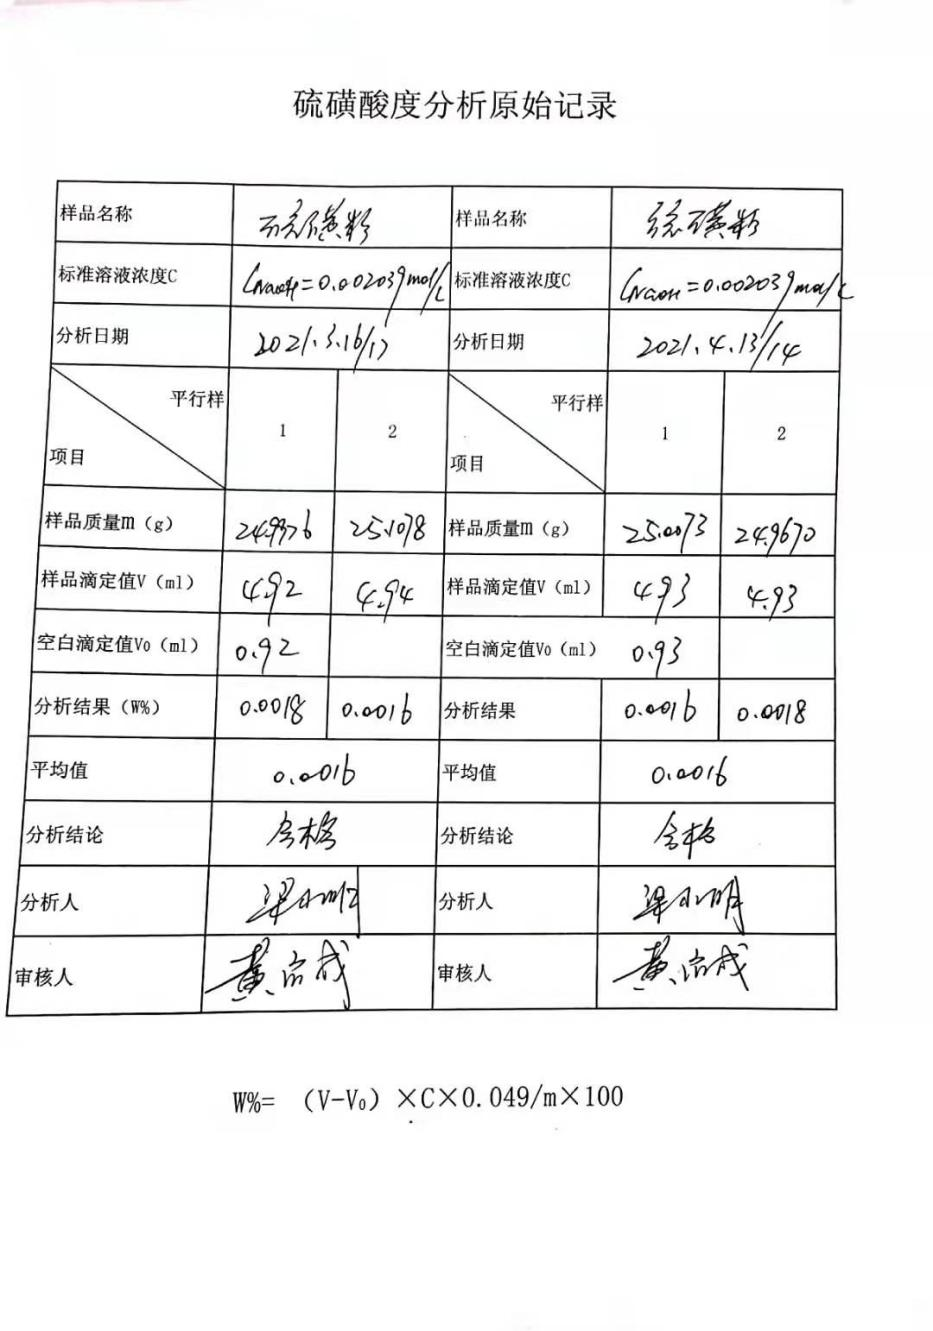 硫磺酸度分析原始记录
样品名称 硫磺粉 样品名称 硫磺粉
标准溶液浓度C CNaOH=0.002039mol/L 标准溶液浓度C CNaOH=0.002039mol/L
分析日期 2021.3.16/17 分析日期 2021.4.13/14
平行样 平行样
1 2 1 2
项目 项目
样品质量m（g） 24.9376 25.1078 样品质量m（g） 25.0073 24.9670
样品滴定值V（ml） 4.92 4.94 样品滴定值V（ml） 4.93 4.93
空白滴定值V₀（ml） 0.92 空白滴定值V₀（ml） 0.93
分析结果（W%） 0.0018 0.0016 分析结果 0.0016 0.0018
平均值 0.0016 平均值 0.0016
分析结论 合格 分析结论 合格
分析人 梁小明 分析人 梁小明
审核人 审核人
W%=（V-V₀）×C×0.049/m×100